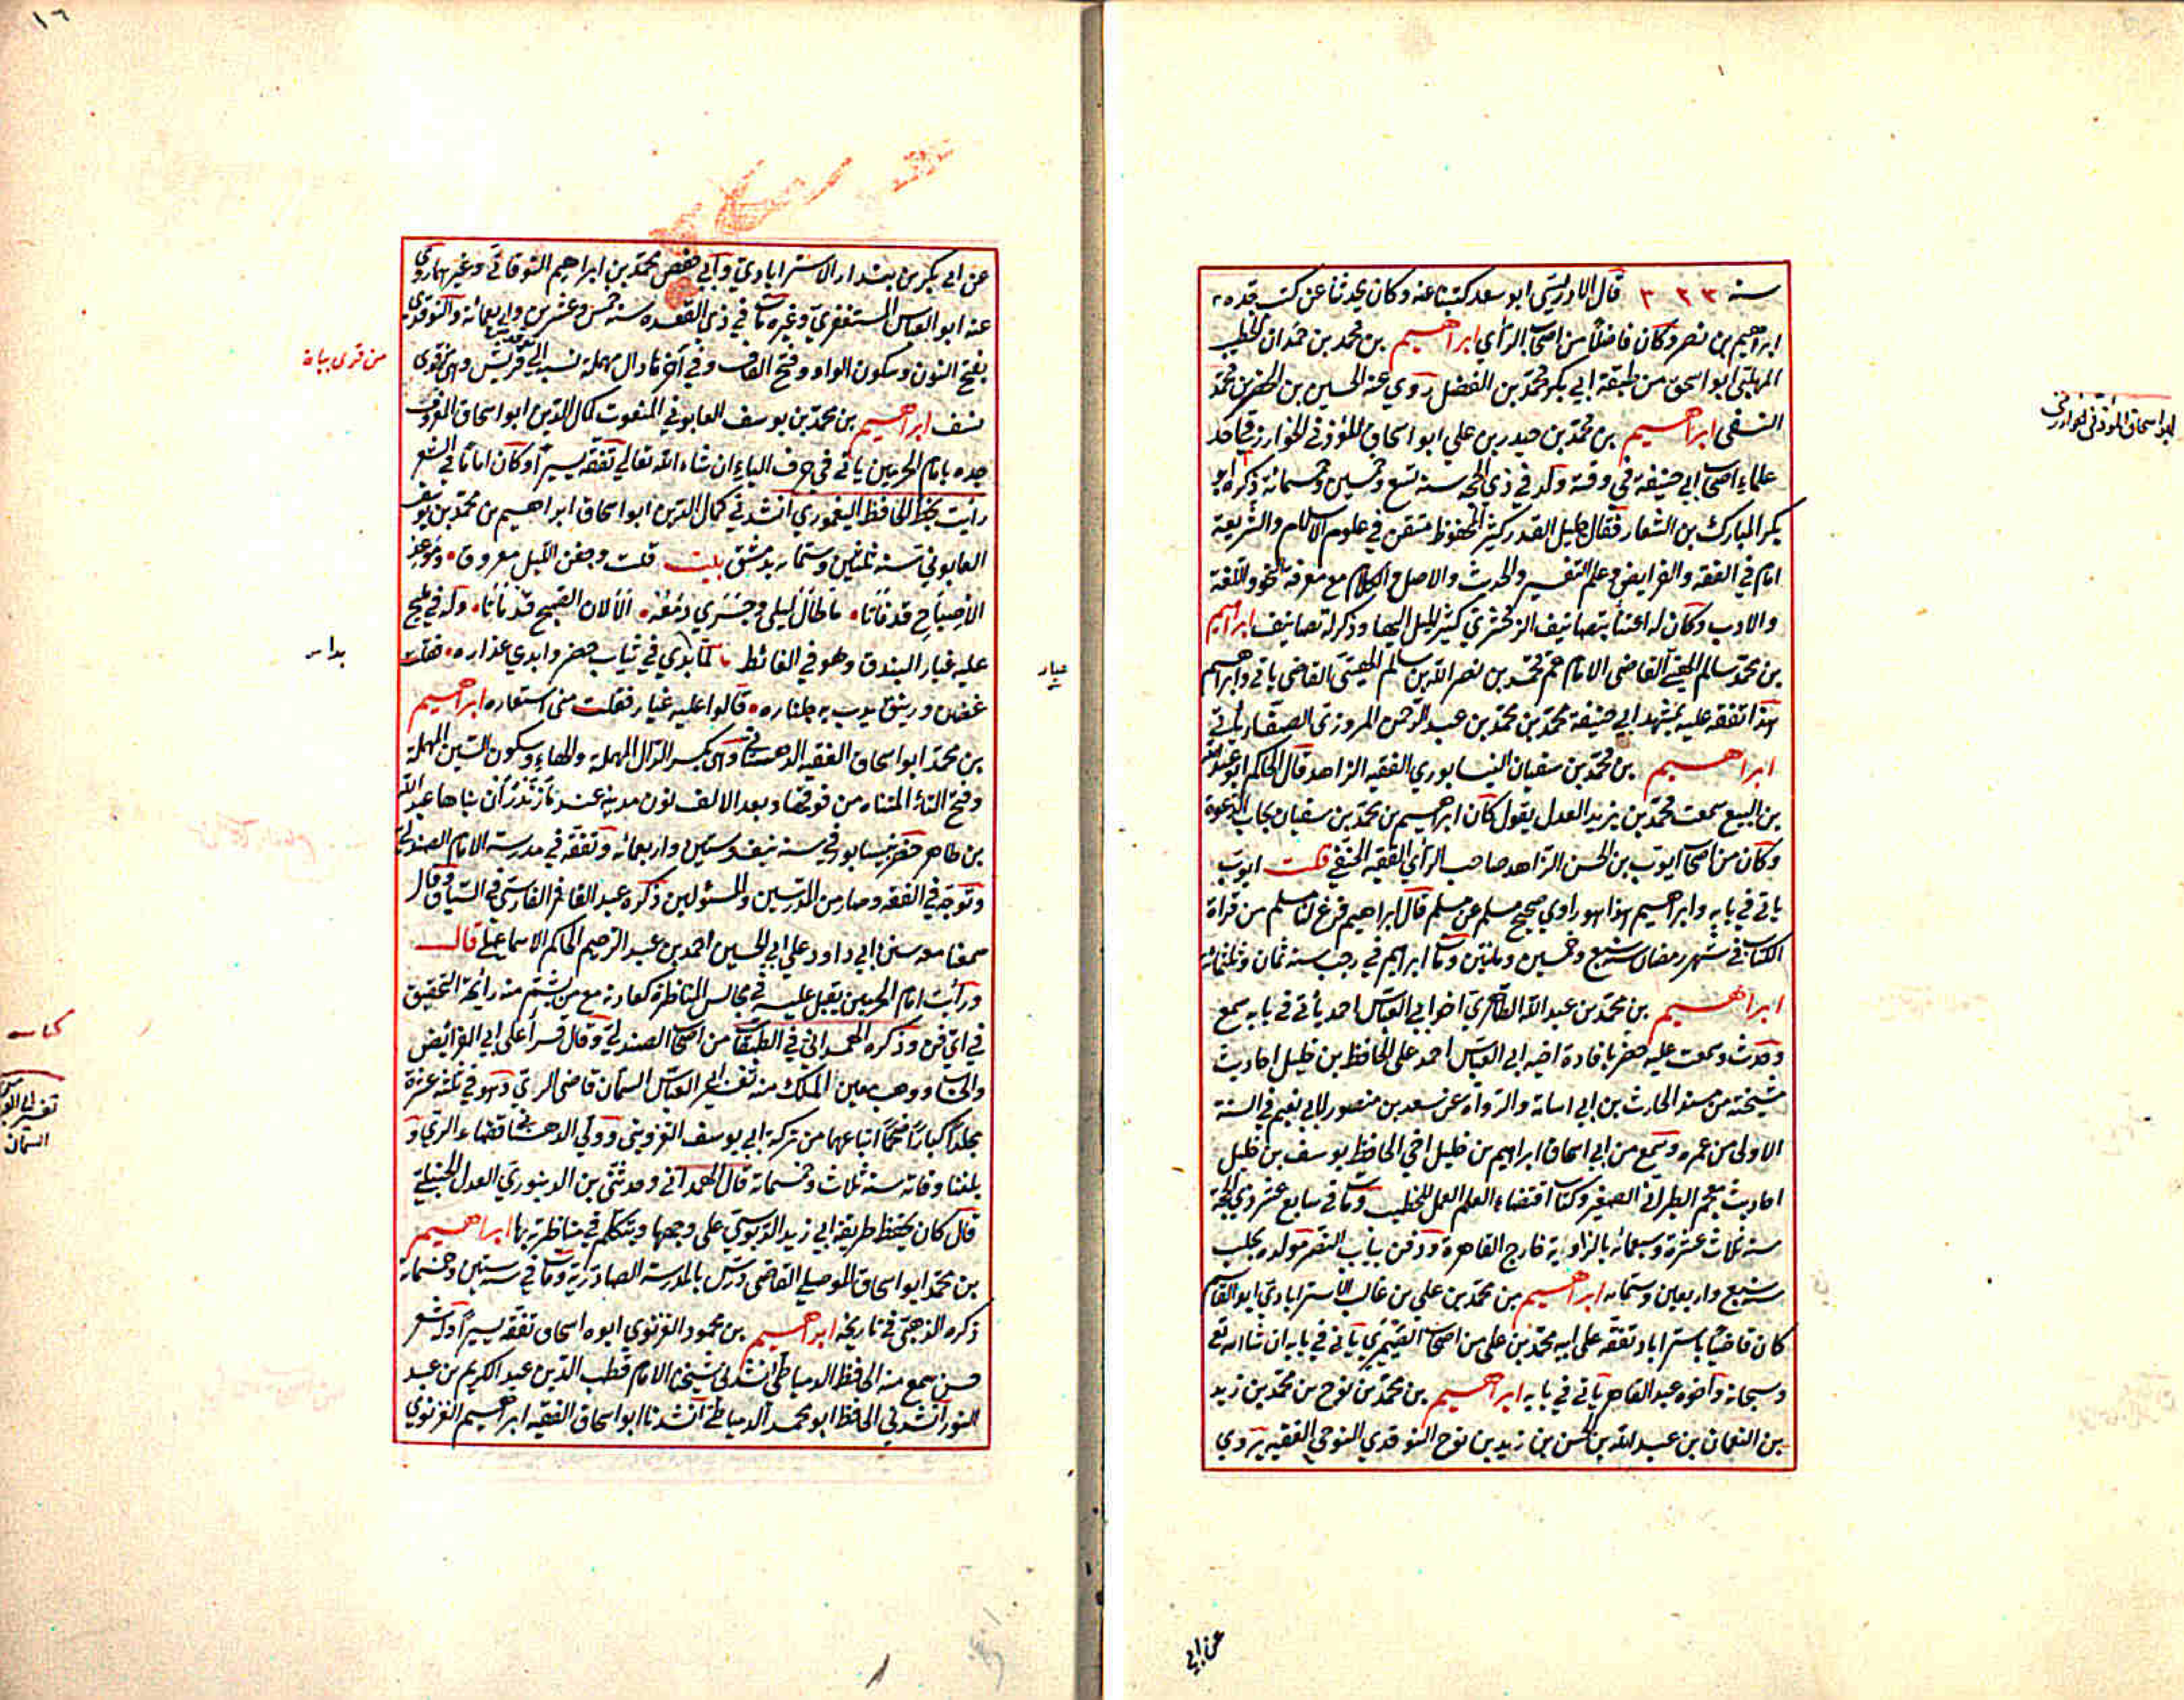 سنة ٣٢٣ قال الادريسي ابو سعد كتبنا عنه وكان يحدثنا عن كتب جده
ابراهيم بن نصر وكان فاضلا من اصحاب الرأي ابراهيم بن محمد بن حمدان الخطيب
المهلبي ابو اسحق من طبقة ابي بكر محمد بن الفضل روى عنه الحسين بن الخضر بن محمد
النسفي ابراهيم بن محمد بن حيدر بن علي ابو اسحاق المؤذني الخوارزمي احد
علماء اصحاب ابي حنيفة في وقته ولد في ذي الحجة سنة تسع وخمسين وخمسمائة ذكره ابو
بكر المبارك بن الشعار فقال جليل القدر كثير المحفوظ متقن في علوم الاسلام والشريعة
امام في الفقه والفرايض وعلم التفسير والحديث والاصل والكلام مع معرفة النحو واللغة
والادب وكان له اعتناء بتصانيف الزمخشري كثير الميل اليها وذكر له تصانيف ابراهيم
بن محمد سالم الهيتي القاضي الامام عم محمد بن نصر الله بن سالم الهيتي القاضي ياتي وابراهيم
هذا تفقه عليه بمشهد ابي حنيفة محمد بن محمد بن عبد الرحمن المروزي الصفار ياتي
ابراهيم بن محمد بن سفيان النيسابوري الفقيه الزاهد قال الحاكم ابو عبد الله
بن البيع سمعت محمد بن يزيد العدل يقول كان ابراهيم بن محمد بن سفيان مجاب الدعوة
وكان من اصحاب ايوب بن الحسن الزاهد صاحب الرأي الفقيه الحنفي قلت ايوب
ياتي في بابه وابراهيم هذا هو راوي صحيح مسلم عن مسلم قال ابراهيم فرغ لنا مسلم من قراة
الكتاب في شهر رمضان سنة سبع وخمسين ومأتين ومات ابراهيم في رجب سنة ثمان وثلثمائة
ابراهيم بن محمد بن عبد الله الظاهري اخو ابي العباس احمد يأتي في بابه سمع
وحدث وسمعت عليه حضر بافادة اخيه ابي العباس احمد على الحافظ بن خليل احاديث
منتخبة من مسند الحارث بن ابي اسامة والرواة عن سعيد بن منصور لابي نعيم في السنة
الاولى من عمره وسمع من ابي اسحاق ابراهيم بن خليل اخي الحافظ يوسف بن خليل
احاديث معجم الطبراني الصغير وكتاب اقتضاء العلم العمل للخطيب ومات في سابع عشر ذي الحجة
سنة ثلاث عشرة وسبعمائة بالزاوية خارج القاهرة ودفن بباب النصر مولده بحلب
سنة سبع واربعين وستمايه ابراهيم بن محمد بن علي بن غالب الاسترابادي ابو القاسم
كان قاضيا باستراباد تفقه على ابيه محمد بن علي من اصحاب الصيمري ياتي في بابه ان شاء الله تع
وسبحانه واخوه عبد القاهر ياتي في بابه ابراهيم بن محمد بن نوح بن محمد بن زيد
بن النعمان بن عبد الله بن الحسن بن زيد بن نوح النوقدي النوحي الفقيه يروي
ابو اسحاق المؤذني الخوارزمي
عن ابي
١٦
عن ابي بكر بن بندار الاسترابادي وابي حفص محمد بن ابراهيم النوقاتي وغيرهما روى
عنه ابو العباس المستغفري وغيره مات في ذي القعدة سنة خمس وعشرين واربعمائة والنوقدي
بفتح النون وسكون الواو وفتح القاف وفي آخرها دال مهملة نسبة الى نوقد قريش وهي من قرى
نسف ابراهيم بن محمد بن يوسف العابوني المنعوت كمال الدين ابو اسحاق المعروف
جده بامام الحرمين ياتي في حرف الياء ان شاء الله تعالى تفقه يسيرا وكان اماما في الشعر
رايت بخط الحافظ اليغموري انشدني كمال الدين ابو اسحاق ابراهيم بن محمد بن يوسف
العابوني سنة ثلثين وستماية بدمشق بليت قلت وجفن الليل معروق ودموع
الاصباح قد فاتا ما طال ليلي وجرى دمعه الا لان الصبح قد ماتا وله في مليح
عليه غبار البندق وهو في الغائط لما بدى في ثياب خضر وابدى عذاره فقلت
غصن وريق يدب به جلناره قالوا عليه غبار فقلت مني استعاره ابراهيم
بن محمد ابو اسحاق الفقيه الدهستاني وهي بكسر الدال المهملة والهاء وسكون السين المهملة
وفتح التاء المثناة من فوقها وبعد الالف نون مدينة عند مازندران بناها عبد الله
بن طاهر حضر نيسابور في سنة نيف وستين واربعمائه وتفقه في مدرسة الامام الصندلي
وتوجه في الفقه وصار من المدرسين والمسئولين ذكره عبد الغافر الفارسي في السياق وقال
سمعنا معه سنن ابي داود على ابي الحسين احمد بن عبد الرحيم الحاكم الاسماعيلي قال
ورأيت امام الحرمين يقبل عليه في مجالس المناظرة كعادته مع من يشتم منه رائحة التحقيق
في اي فن وذكره الهمداني في الطبقات من اصحاب الصندلي وقال قرأ على ابي الفرائض
والحساب ووهب معين الملك منه تفسير ابي العباس السمان قاضي الري وهو في ثلثة عشرة
مجلدا كبارا ضخما ابتاعها من تركة ابي يوسف القزويني وولي الدهستاني قضاء الري و
بلغنا وفاته سنة ثلاث وخمسماية قال الهمداني وحدثني بن الدينوري العدل الحنبلي
قال كان يحفظ طريقة ابي زيد الدبوسي على وجهها ويتكلم في مناظرته بها ابراهيم
بن محمد ابو اسحاق الموصلي القاضي درس بالمدرسة الصادرية ومات في سنة ستين وخمسماية
ذكره الذهبي في تاريخه ابراهيم بن محمود الغزنوي ابوه اسحاق تفقه يسيرا وله شعر
حسن سمع منه الحافظ الدمياطي انشدني شيخنا الامام قطب الدين عبد الكريم بن عبد
النور انشدني الحافظ ابو محمد الدمياطي انشدنا ابو اسحاق الفقيه ابراهيم الغزنوي
غبار
كتاب
تفسير ابي العباس
السمان